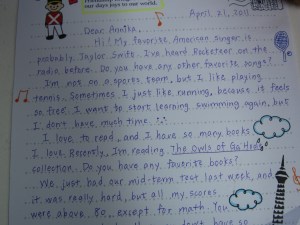 our days joys to our world.
April 21, 2011
Dear Annika,
Hi! My favorite American singer is
probably Taylor Swift. I've heard Rocketeer on the
radio before. Do you have any other favorite songs?
I'm not on a sports team, but I like playing
tennis. Sometimes I just like running, because it feels
so free. I want to start learning swimming again, but
I don't have much time.
I love to read, and I have so many books
I love. Recently, I'm reading The Owls of Ga'Hoole
collection. Do you have any favorite books?
We just had our mid-term test last week, and
it was really hard, but all my scores
were above 80, except for math. You
don't have so